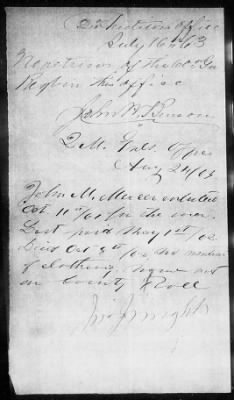 office
July 16th 63
No return of the 60th Ga
Regt in this office
John
Q.M. Genls Office
Aug 24/63
John M. Mercer enlisted
Oct 11th/61 for the war.
Last paid May 1st/62
Died Oct 5th/62, no mention
of clothing. Name not
on bounty Roll
Jno